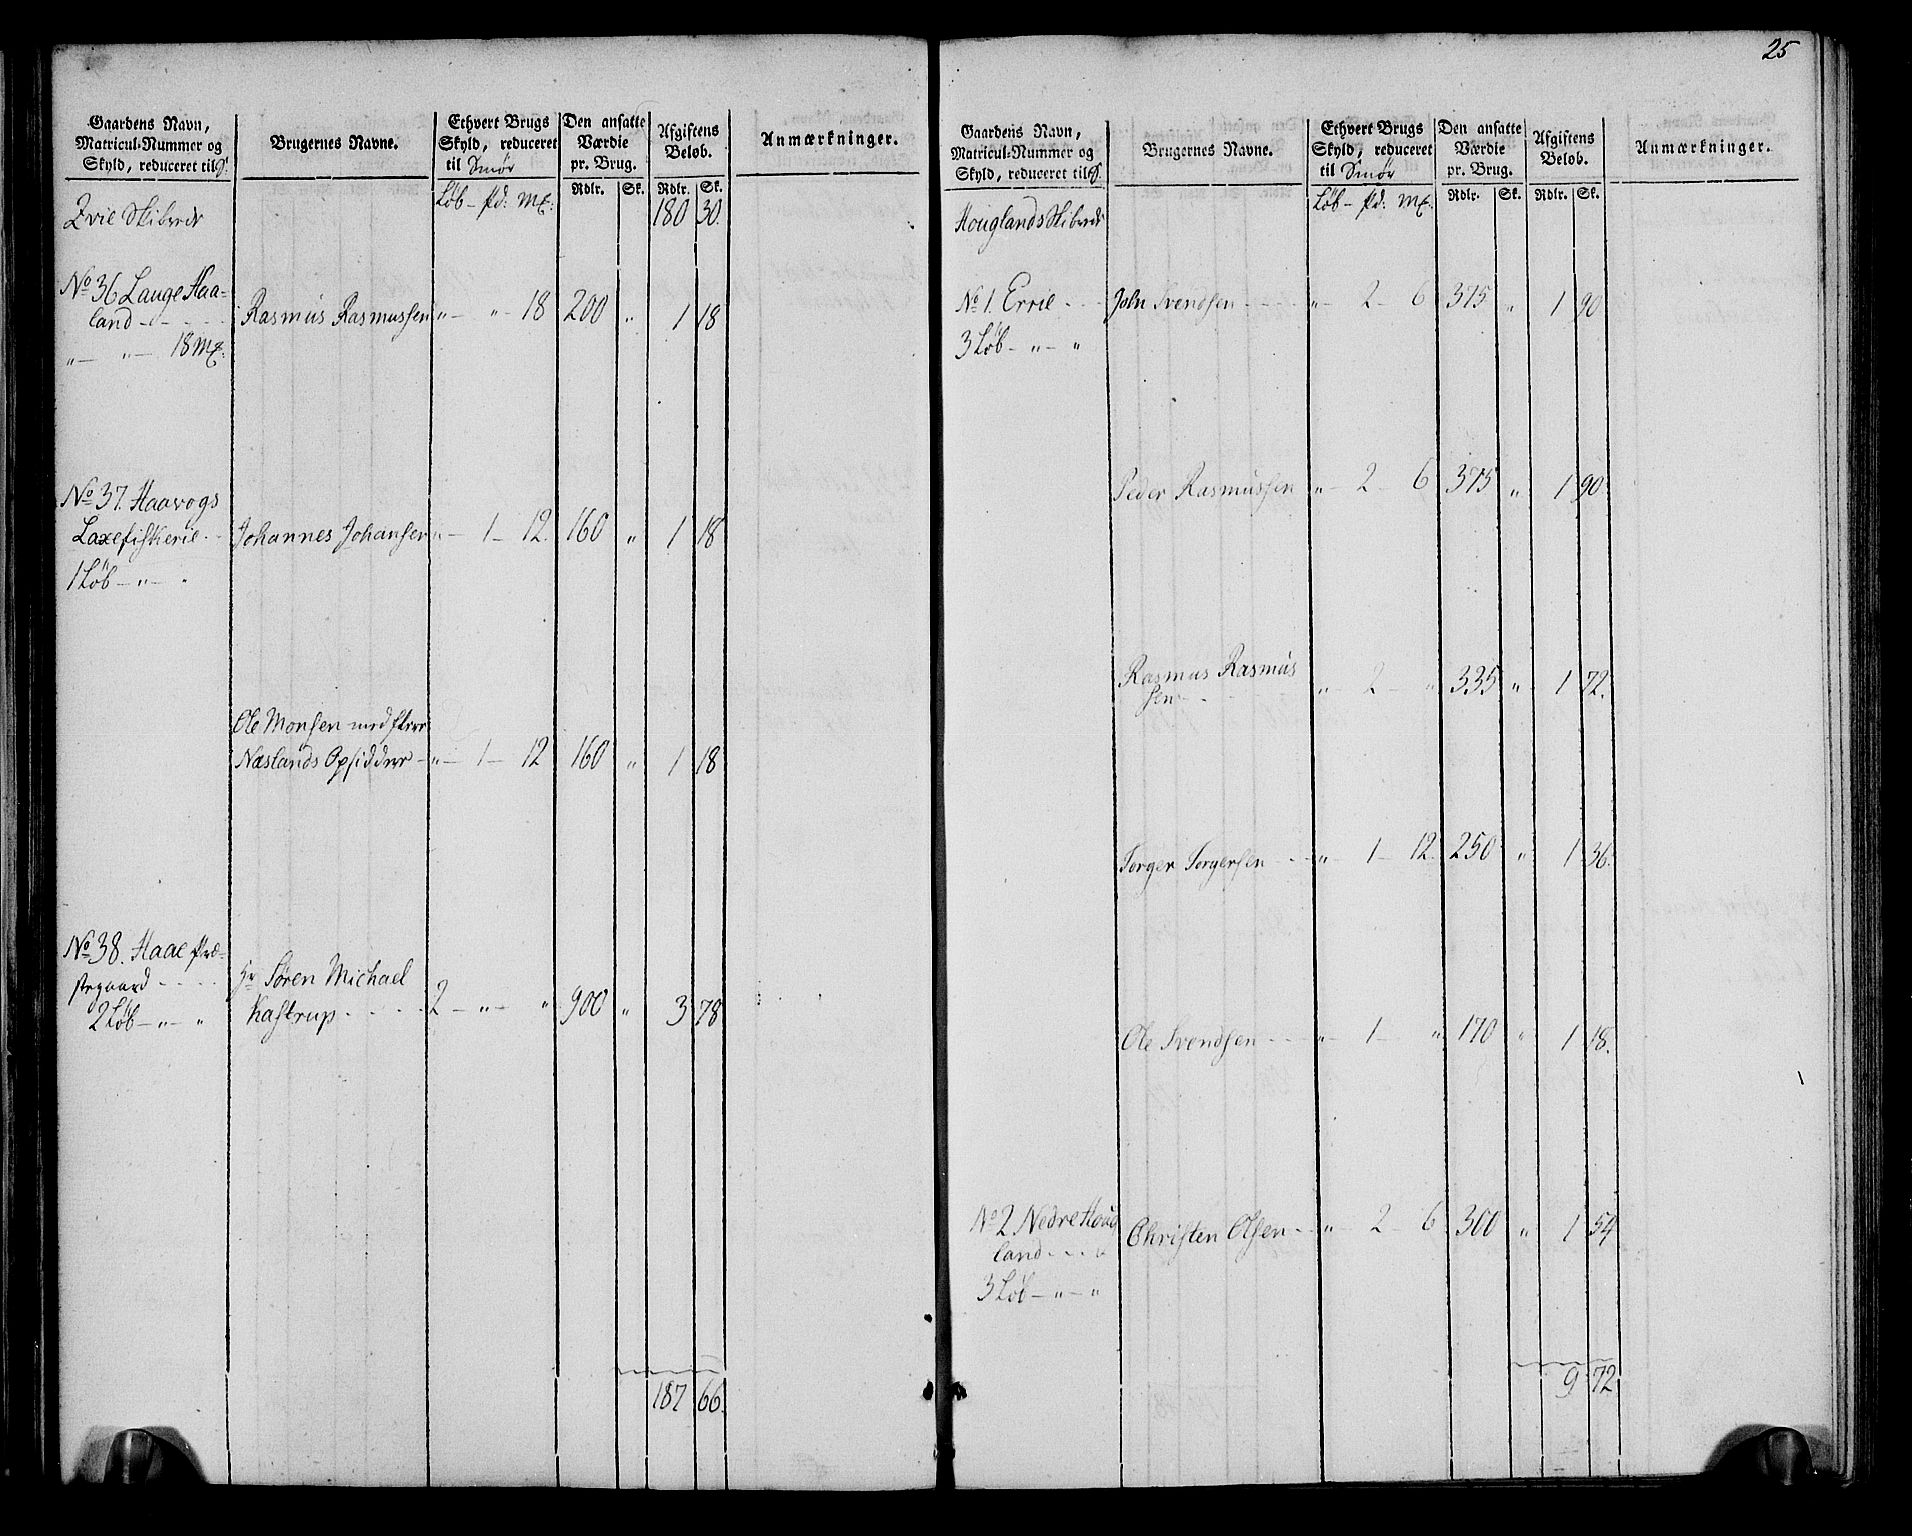 Gaardens Navn,
Matricul-Nummer og
Skyld, reduceret til
Brugernes Navne.
Ethvert Brugs
Skyld, reduceret
til Smör
Den ansatte
Værdie
pr. Brug.
Afgiftens
Beløb.
Anmærkninger.
Løb - pd: Mk:
Rdlr. Sk. Rdlr. Sk.
Qvie Skibrede 180 30.
No 36 Lauge Haa-
land
Rasmus Rasmussen " " 18 200 " 1 18
" " 18 Mk:
No 37. Haavogs
Laxefiskerie Johannes Johansen " 1 12. 160 " 1 18
1 Løb - " - "
Ole Monsen med flere
Næslands Opsiddere " 1 12 160 " 1 18
No 38. Haae Præ-
stegaard
Hr Søren Michael
2 Løb - " - " Kastrup 2 " " 900 " 3 78
187 66.
25
Gaardens Navn,
Matricul-Nummer og
Skyld, reduceret til
Brugernes Navne.
Ethvert Brugs
Skyld, reduceret
til Smör
Den ansatte
Værdie
pr. Brug.
Afgiftens
Beløb.
Anmærkninger.
Løb - pd: Mk:
Rdlr. Sk. Rdlr. Sk.
Houglands Skibrede
No 1. Errie John Svendsen " 2 6 375 " 1 90
3 Løb - " - "
Peder Rasmussen " 2 6 375 " 1 90
Rasmus Rasmus
sen " 2 " 335 " 1 72.
Torger Torgersen " 1 12. 250 " 1 36.
Ole Svendsen " 1 " 170 " 1 18.
No 2 Nedre Houg
land Christen Olsen " 2 6 300 " 1 54
3 Løb - " - "
9 72